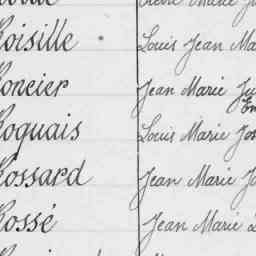 oisille Louis Jean Ma
oncier Jean Marie Ju
oquais Louis Marie Jo
ossard Jean Marie Jo
ossé Jean Marie